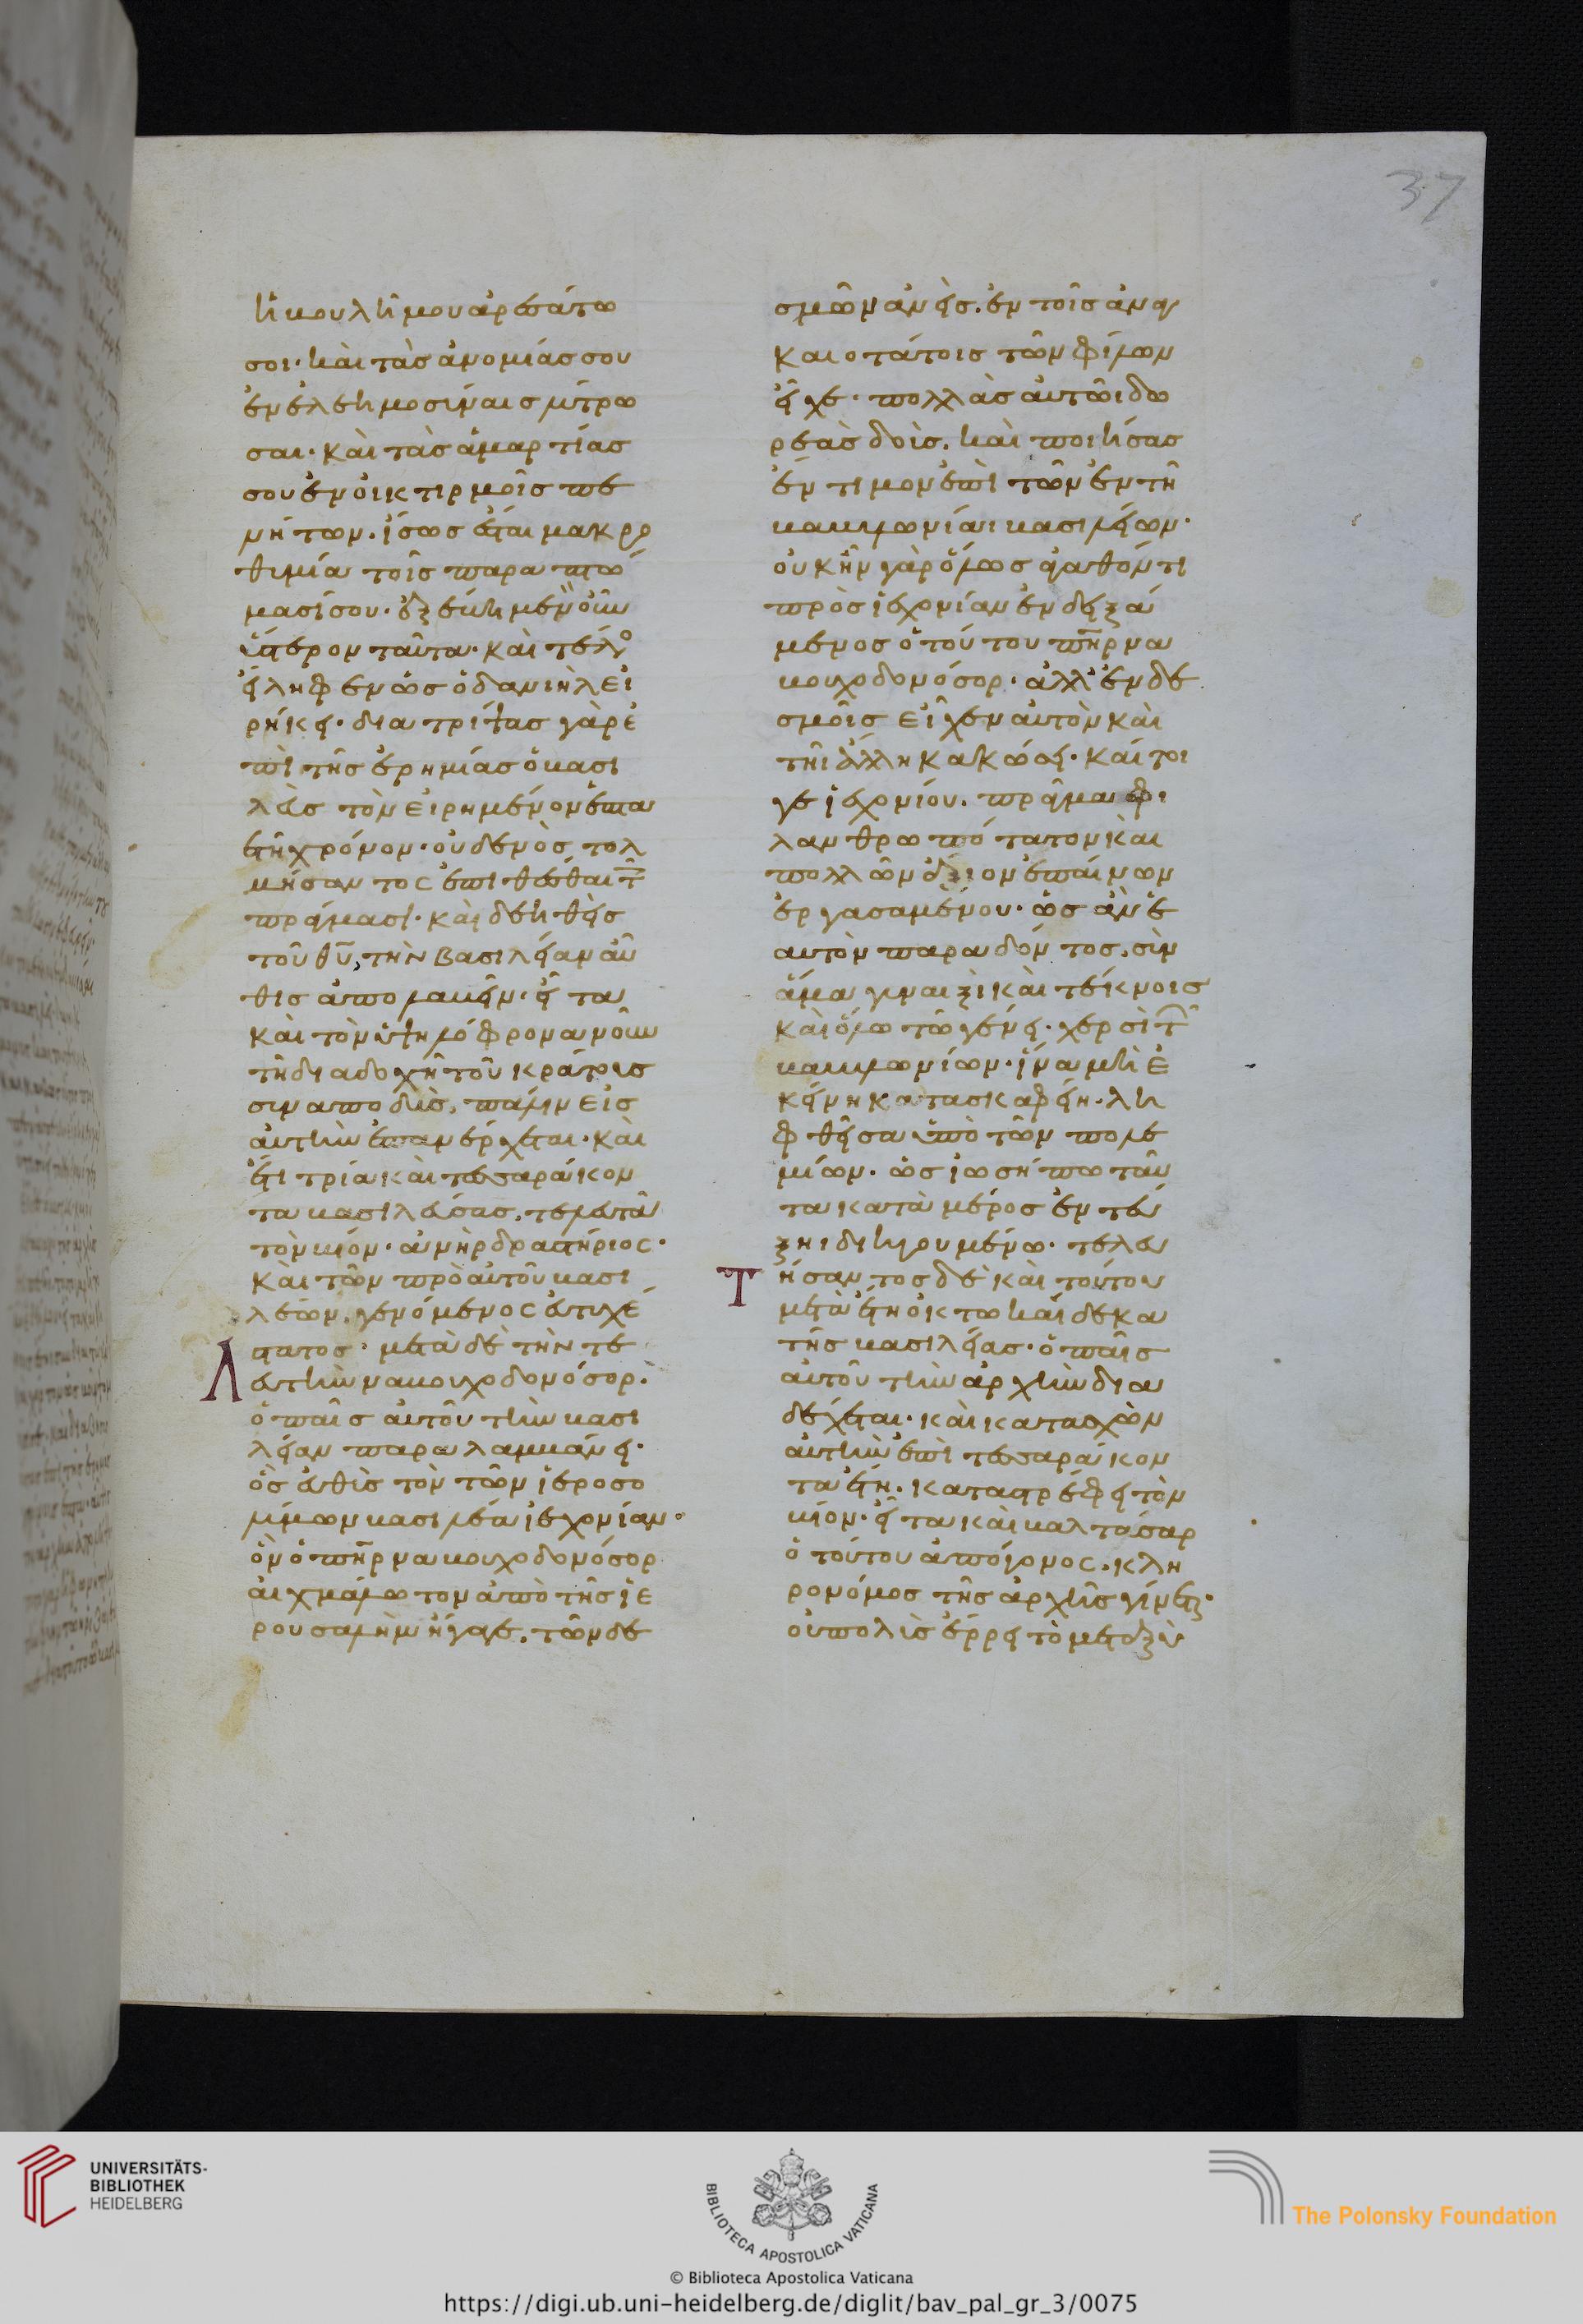 37
ἡ βουλή μου ἀρεσάτω
σοι· καὶ τὰς ἀνομίας σου
ἐν ἐλεημοσύναις λύτρω
σαι· καὶ τὰς ἁμαρτίας
σου ἐν οἰκτιρμοῖς πε
νήτων. ἴσως ἔσται μακρο
θυμία τοῖς παραπτώ
μασί σου. ἐξέβη μὲν οὖν
ὕστερον ταῦτα· καὶ τέλος
εἴληφεν ὡς ὁ δανιὴλ εἰ
ρήκει· διατρίψας γὰρ ἐ
πὶ τῆς ἐρημίας ὁ βασι
λεὺς τὸν εἰρημένον ἑπτα
ετῆ χρόνον· οὐδενὸς τολ
μήσαντος ἐπιθέσθαι τοῖς
πράγμασι· καὶ δεηθεὶς
τοῦ θυ, τὴν βασιλείαν αὖ
θις ἀπολαβεῖν· εἶτα
καὶ τὸν ὑψηλόφρονα νοῦν
τῇ διαδοχῇ τοῦ κράτους
συναποδυὶς, πάλιν εἰς
αὐτὴν ἐπανέρχεται· καὶ
ἔτι τρία καὶ τεσσαράκον
τα βασιλεύσας, τελευτᾶ
τὸν βίον· ἀνὴρ δραστήριος·
καὶ τῶν πρὸ αὐτοῦ βασι
λέων, γενόμενος εὐτυχέ
στατος· μετὰ δὲ τὴν τε
λευτὴν ναβουχοδονόσορ·
ὁ παῖς αὐτοῦ τὴν βασι
λείαν παραλαμβάνει·
ὃς εὐθὺς τὸν τῶν ἱεροσο
λύμων βασιλέα ἰεχονίαν·
ὃν ὁ πηρ ναβουχοδονόσορ
αἰχμάλωτον ἀπὸ τῆς ἱε
ρουσαλὴμ ἤγαγε, τῶν δε
σμῶν ἀνεὶς. ἐν τοῖς ἀναγ
καιοτάτοις τῶν φίλων
εἶχε· πολλὰς αὐτῶι δω
ρεὰς δοὺς. καὶ ποιήσας
ἔντιμον ἐπὶ τῶν ἐν τῇ
βαβυλωνίαι βασιλείων·
οὐκ ἦν γὰρ ὅλως ἀγαθόν τι
πρὸς ἰεχονίαν ἐνδειξά
μενος ὁ τούτου πηρ να
βουχοδονόσορ· ἀλλ' ἐν δε
σμοῖς εἶχεν αὐτὸν καὶ
τῆι ἄλλη κακώσει· καίτοι
γε ἰεχονίου. πρᾶγμα φι
λανθρωπότατον καὶ
πολλῶν ἄξιον ἐπαίνων
ἐργασαμένου· ὡς ἂν ἑ
αυτὸν παραδόντος, σὺν
ἅμα γυναιξὶ καὶ τέκνοις
καὶ ὅλω τῶ γένει· χερσὶ τῶν
βαβυλωνίων· ἵνα μὴ ἐ
κείνη κατασκαφείη· λη
φθεῖσα ὑπὸ τῶν πολε
μίων· ὡς ἰωσήπω ταῦ
τα κατὰ μέρος ἐν τεύ
ξηι διηγουμένω· τελευ
τήσαντος δὲ καὶ τούτου
μετὰ ἔτη ὀκτωκαίδεκα
τῆς βασιλείας· ὁ παῖς
αὐτοῦ τὴν ἀρχὴν δια
δέχεται· καὶ κατασχὼν
αὐτὴν ἐπὶ τεσσαράκον
τα ἔτη. καταστρέφει τὸν
βίον· εἶτα καὶ βαλτάσαρ
ὁ τούτου ἀπόγονος. κλη
ρονόμος τῆς ἀρχῆς γίνεται·
οὐ πολὺς ἔρρει τὸ μεταξὺ
UNIVERSITÄTS-
BIBLIOTHEK
HEIDELBERG
BIBLIOTECA APOSTOLICA VATICANA
The Polonsky Foundation
© Biblioteca Apostolica Vaticana
https://digi.ub.uni-heidelberg.de/diglit/bav_pal_gr_3/0075